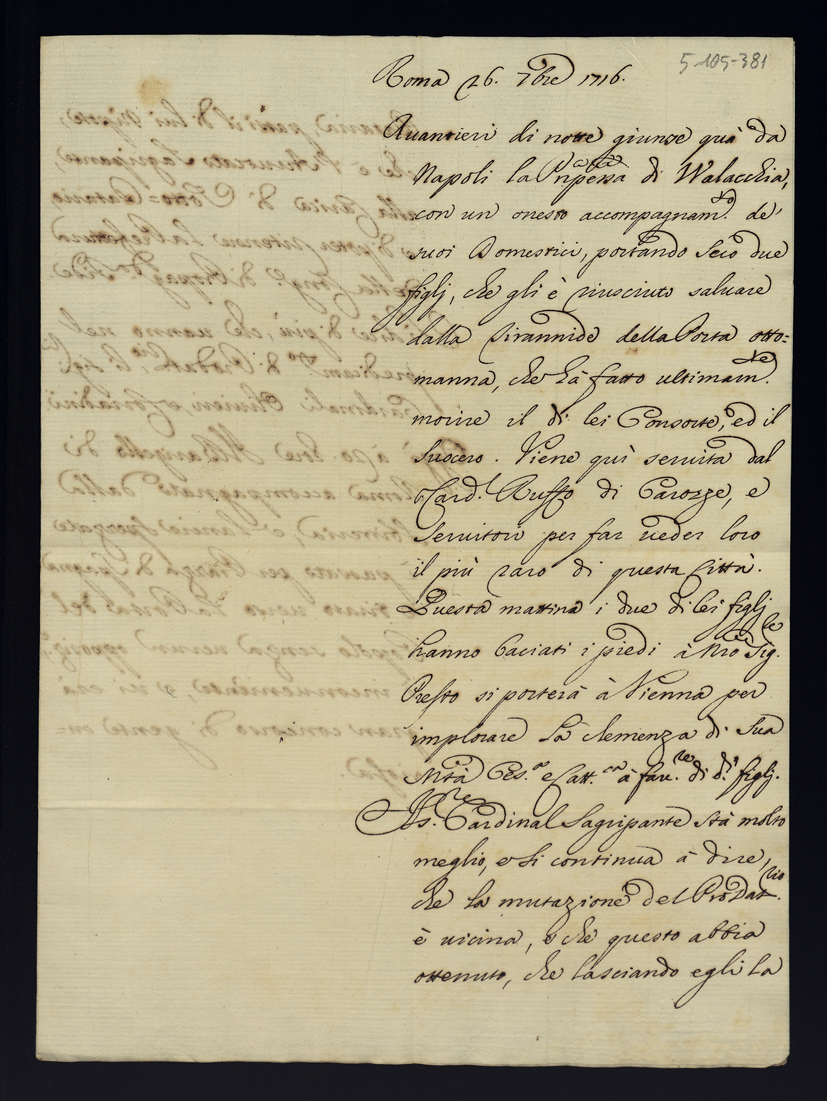 5-105-381
Roma 26. 7bre 1716.
Avantieri di notte giunse quà da
Napoli la Pnpessa di Walacchia,
con un onesto accompagnam.to de'
suoi Domestici, portando seco due
figlj, che gli è riusciuto salvare
dalla Tirannide della Porta otto=
manna, che hà fatto ultimam.te
morire il di lei Consorte, ed il
Suocero. Viene quì servita dal
Card.l Ruffo di Carozze, e
Servitori per far veder loro
il più raro di questa Città.
Questa mattina i due di lei figlj
hanno baciati i piedi à Nro Sig.re
Presto si porterà à Vienna per
implorare la clemenza di Sua
Mtà Ces.a e Catt.ca à fav.re di d.i figlj.
Il Sr. Cardinal Sagripante stà molto
meglio, e si continua à dire,
che la mutazione del ProDat.rio
è vicina, e che questo abbia
ottenuto, che lasciando egli la